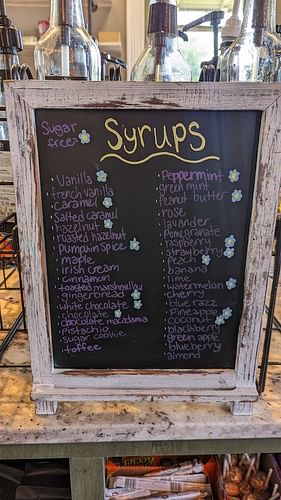 Sugar
free-
Syrups
Vanilla
french vanilla
caramel
salted caramel
hazelnut
roasted hazelnut
Pumpkin Spice
maple
Irish cream
cinnamon
toasted marshmallow
gingerbread
white chocolate
chocolate
chocolate macadamia
Pistachio
sugar cookie
toffee
Peppermint
green mint
Peanut butter
rose
lavander
Pomegranate
raspberry
strawberry
Peach
banana
lime
watermelon
cherry
blue razz
Pineapple
coconut
blackberry
green apple
blueberry
almond